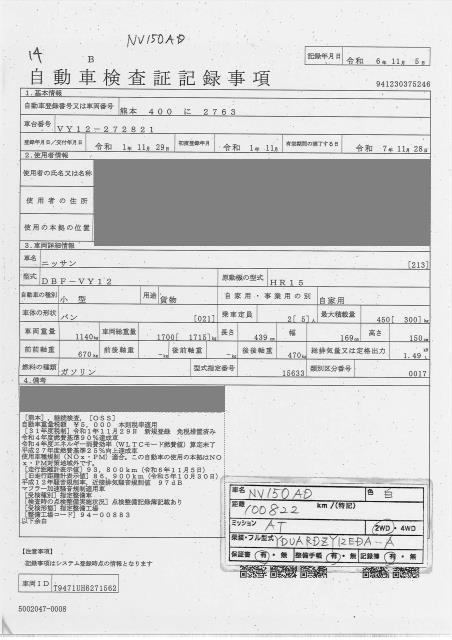 NV150AD
14
B
記録年月日 令和 6年11月 5日
自動車検査証記録事項
941230375246
1.基本情報
自動車登録番号又は車両番号 熊本 400 に 2763
車台番号 VY12-272821
登録年月日/交付年月日 令和 1年11月29日 初度登録年月 令和 1年11月 有効期間の満了する日 令和 7年11月28日
2.使用者情報
使用者の氏名又は名称
使用者の住所
使用の本拠の位置
3.車両詳細情報
車名 ニッサン [213]
型式 DBF-VY12 原動機の型式 HR15
自動車の種別 小型 用途 貨物 自家用・事業用の別 自家用
車体の形状 バン [021] 乗車定員 2[ 5]人 最大積載量 450[ 300]kg
車両重量 1140kg 車両総重量 1700[ 1715]kg 長さ 439cm 幅 169cm 高さ 150cm
前前軸重 670kg 前後軸重 -kg 後前軸重 -kg 後後軸重 470kg 総排気量又は定格出力 1.49L
燃料の種類 ガソリン 型式指定番号 15633 類別区分番号 0017
4.備考
[熊本],継続検査,[OSS]
自動車重量税額 ¥5,000 本則税率適用
[31年度税制]令和1年11月29日 新規登録 免税措置済み
令和4年度燃費基準90%達成車
令和4年度エネルギー消費効率(WLTCモード燃費値)算定未了
平成27年度燃費基準25%向上達成車
使用車種規制(NOx・PM)適合,この自動車の使用の本拠はNO
x・PM対策地域外です。
[走行距離計表示値]93,800km(令和6年11月5日)
[旧走行距離計表示値]86,900km(令和5年10月30日)
平成12年騒音規制車,近接排気騒音規制値 97dB
マフラー加速騒音規制適用車
[受検種別]指定整備車
[検査時の点検整備実施状況]点検整備記録簿記載あり
[受検形態]指定整備工場
[整備工場コード]94-00883
以下余白
車名 NV150AD 色 白
距離 100822 km/(特記)
ミッション AT 2WD・4WD
類装・フル型式 YDUARDZY12EDA-A
保証書 有・無 整備手帳 有・無 記録簿 有・無
【注意事項】
記録事項はシステム登録時点の情報となります
車両ID T9471UH6271562
5002047-0008